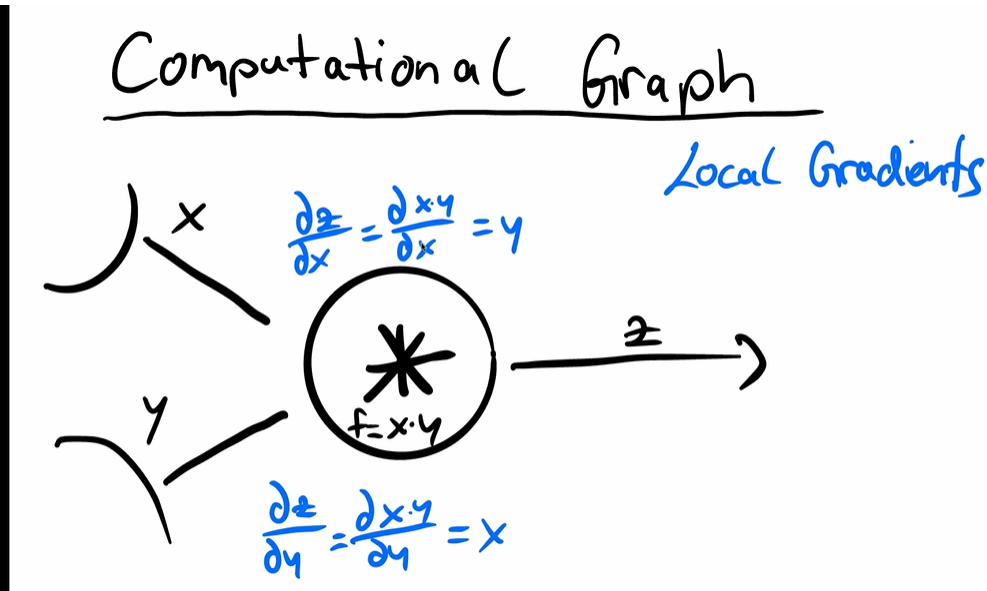 Computational Graph
Local Gradients
x
∂z/∂x = ∂x·y/∂x = y
z
*
y
f=x·y
∂z/∂y = ∂x·y/∂y = x